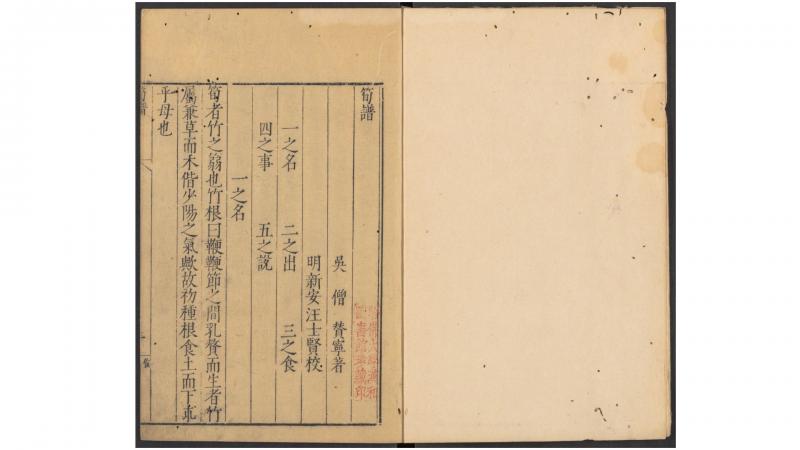 筍譜
吳 僧 贊寧著
明 新安汪士賢校
一之名 二之出 三之食
四之事 五之說
一之名
筍者竹之篛也竹根曰鞭鞭節之間乳贅而生者竹
屬兼草而木偕少陽之氣歟故初種根食土而下
乎母也
筍譜